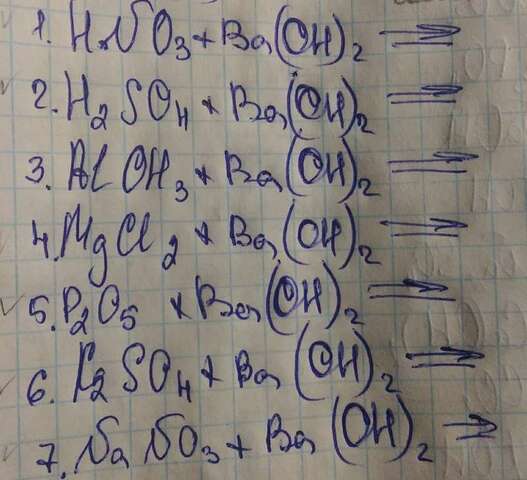 1. HNO3 + Ba(OH)2 =>
2. H2SO4 + Ba(OH)2 =>
3. AlOH3 + Ba(OH)2 =>
4. MgCl2 + Ba(OH)2 =>
5. P2O5 + Ba(OH)2 =>
6. K2SO4 + Ba(OH)2 =>
7. NaNO3 + Ba(OH)2 =>